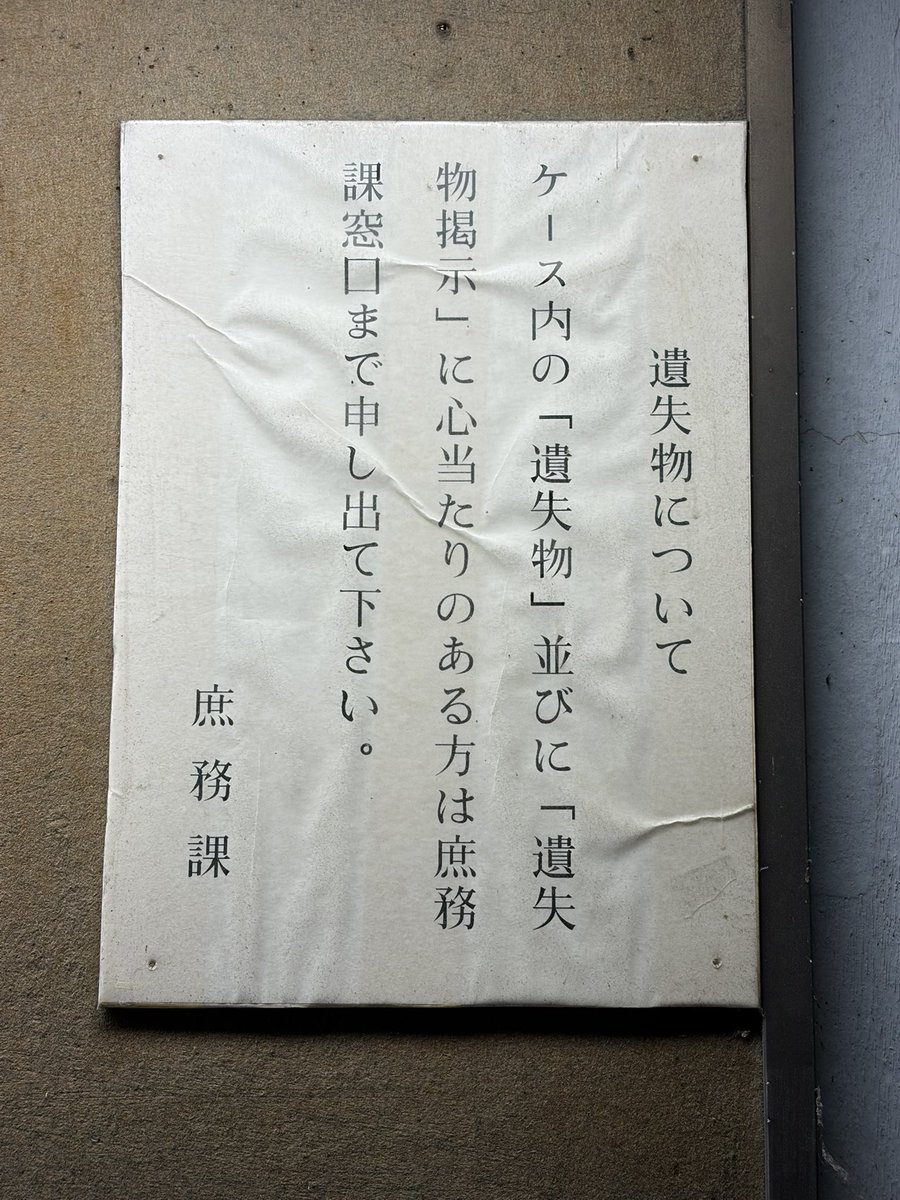 遺失物について
ケース内の「遺失物」並びに「遺失
物掲示」に心当たりのある方は庶務
課窓口まで申し出て下さい。
庶務課